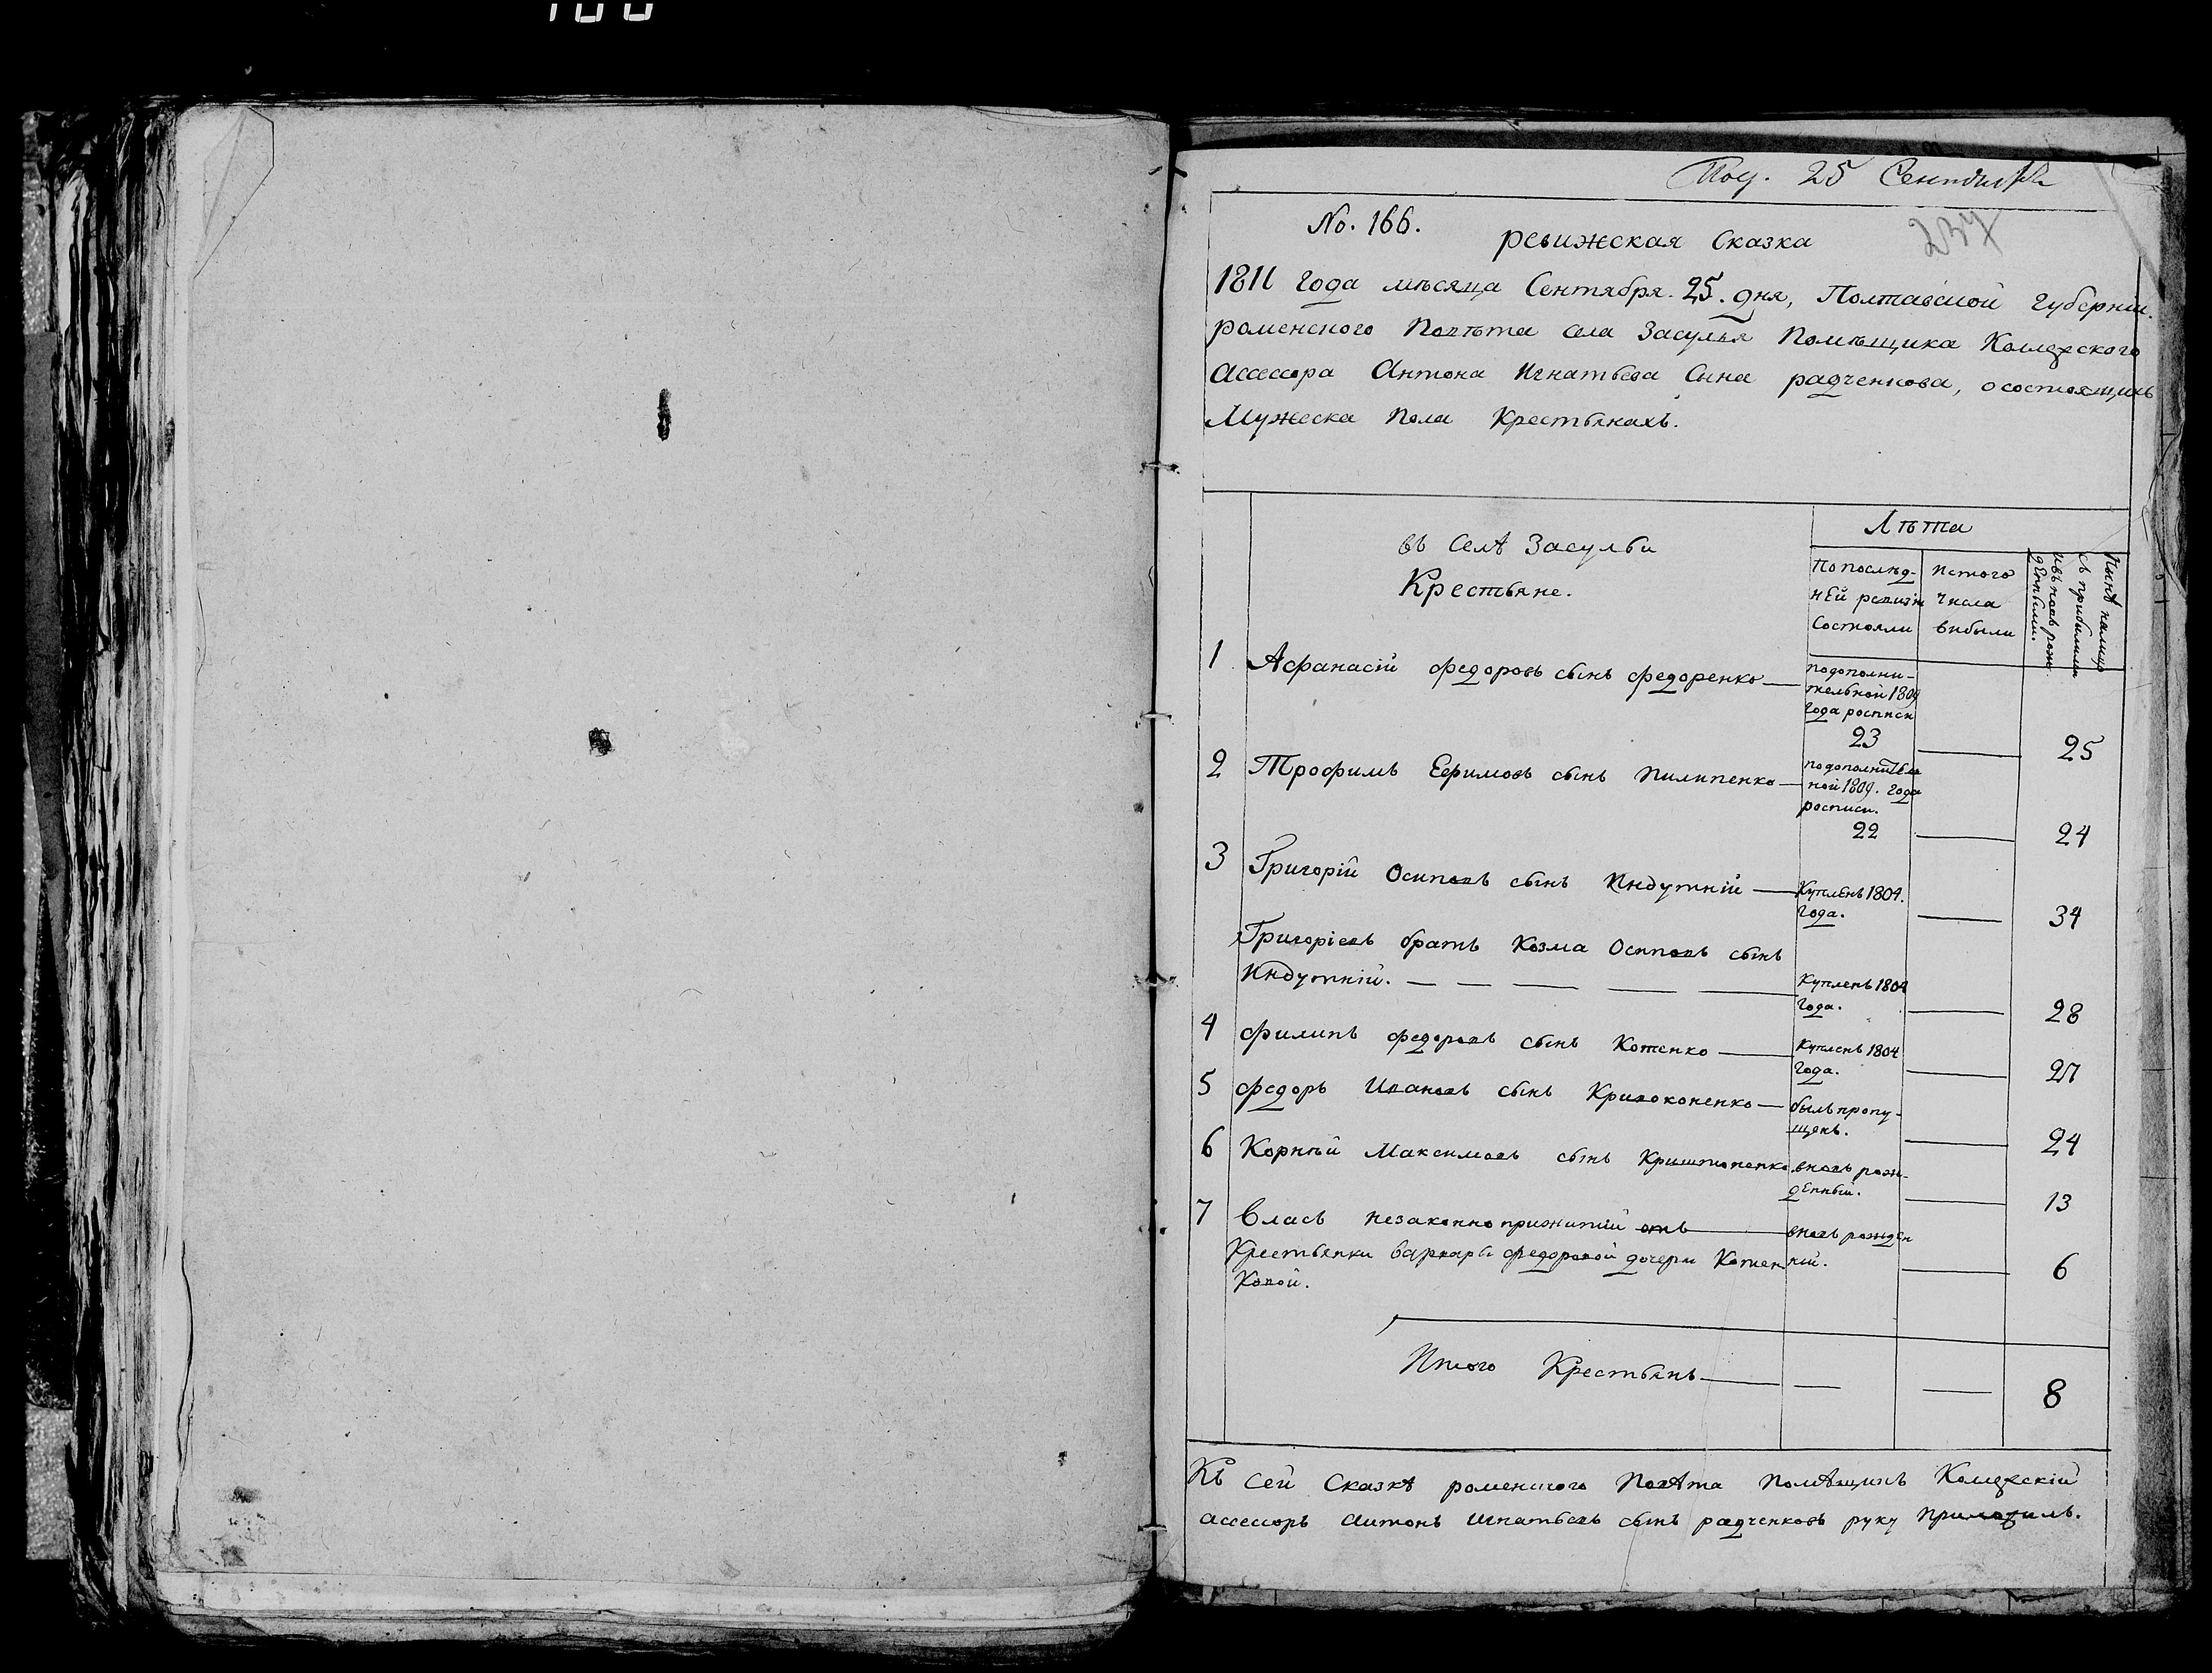 Пол. 25 Сентября
237
No. 166. ревижская Сказка
1811 года мѣсяца Сентября. 25. дня, Полтавской губерніи.
роменского Повѣта села Засулья Помѣщика Коллежского
Ассессора Антона Игнатьева Сына радченкова, о состоящихъ
Мужеска Пола Крестьянахъ.
въ Селѣ Засульи
Крестьяне.
Лѣта
По послѣд-
ней ревизіи
Состояли
Истого
Числа
выбыли
Нынѣ налицо
съ прибылими
ивъ новь рож
денными.
1 Афанасій федоровъ сынъ федоренко —
подополни-
тельной 1809
года росписи
23 — 25
2 Трофимъ Ефимовъ сынъ Пилипенко —
подополнитель
ной 1809. года
росписи.
22 — 24
3 Григорій Осиповъ сынъ Индутній — Купленъ 1804.
года. — 34
Григоріевъ братъ Козма Осиповъ сынъ
Индутній. — — — — — Купленъ 1804
года. — 28
4 филипъ федоровъ сынъ Котенко — Купленъ 1804
года. — 27
5 федоръ Ивановъ сынъ Кривоконенко — былъ пропу-
щенъ. — 24
6 Корнѣй Максимовъ сынъ Криштопенко. вновь рож-
денный. — 13
7 Власъ незаконно прижитій отъ — вновь рожден
Крестьянки Варвары федоровой дочери Котен ній. — 6
Ковой.
Итого Крестьянъ — — — 8
Къ сей Сказкѣ роменского Повѣта помѣщикъ Коллежскій
ассессоръ Антонъ Игнатьевъ сынъ радченковъ руку приложилъ.